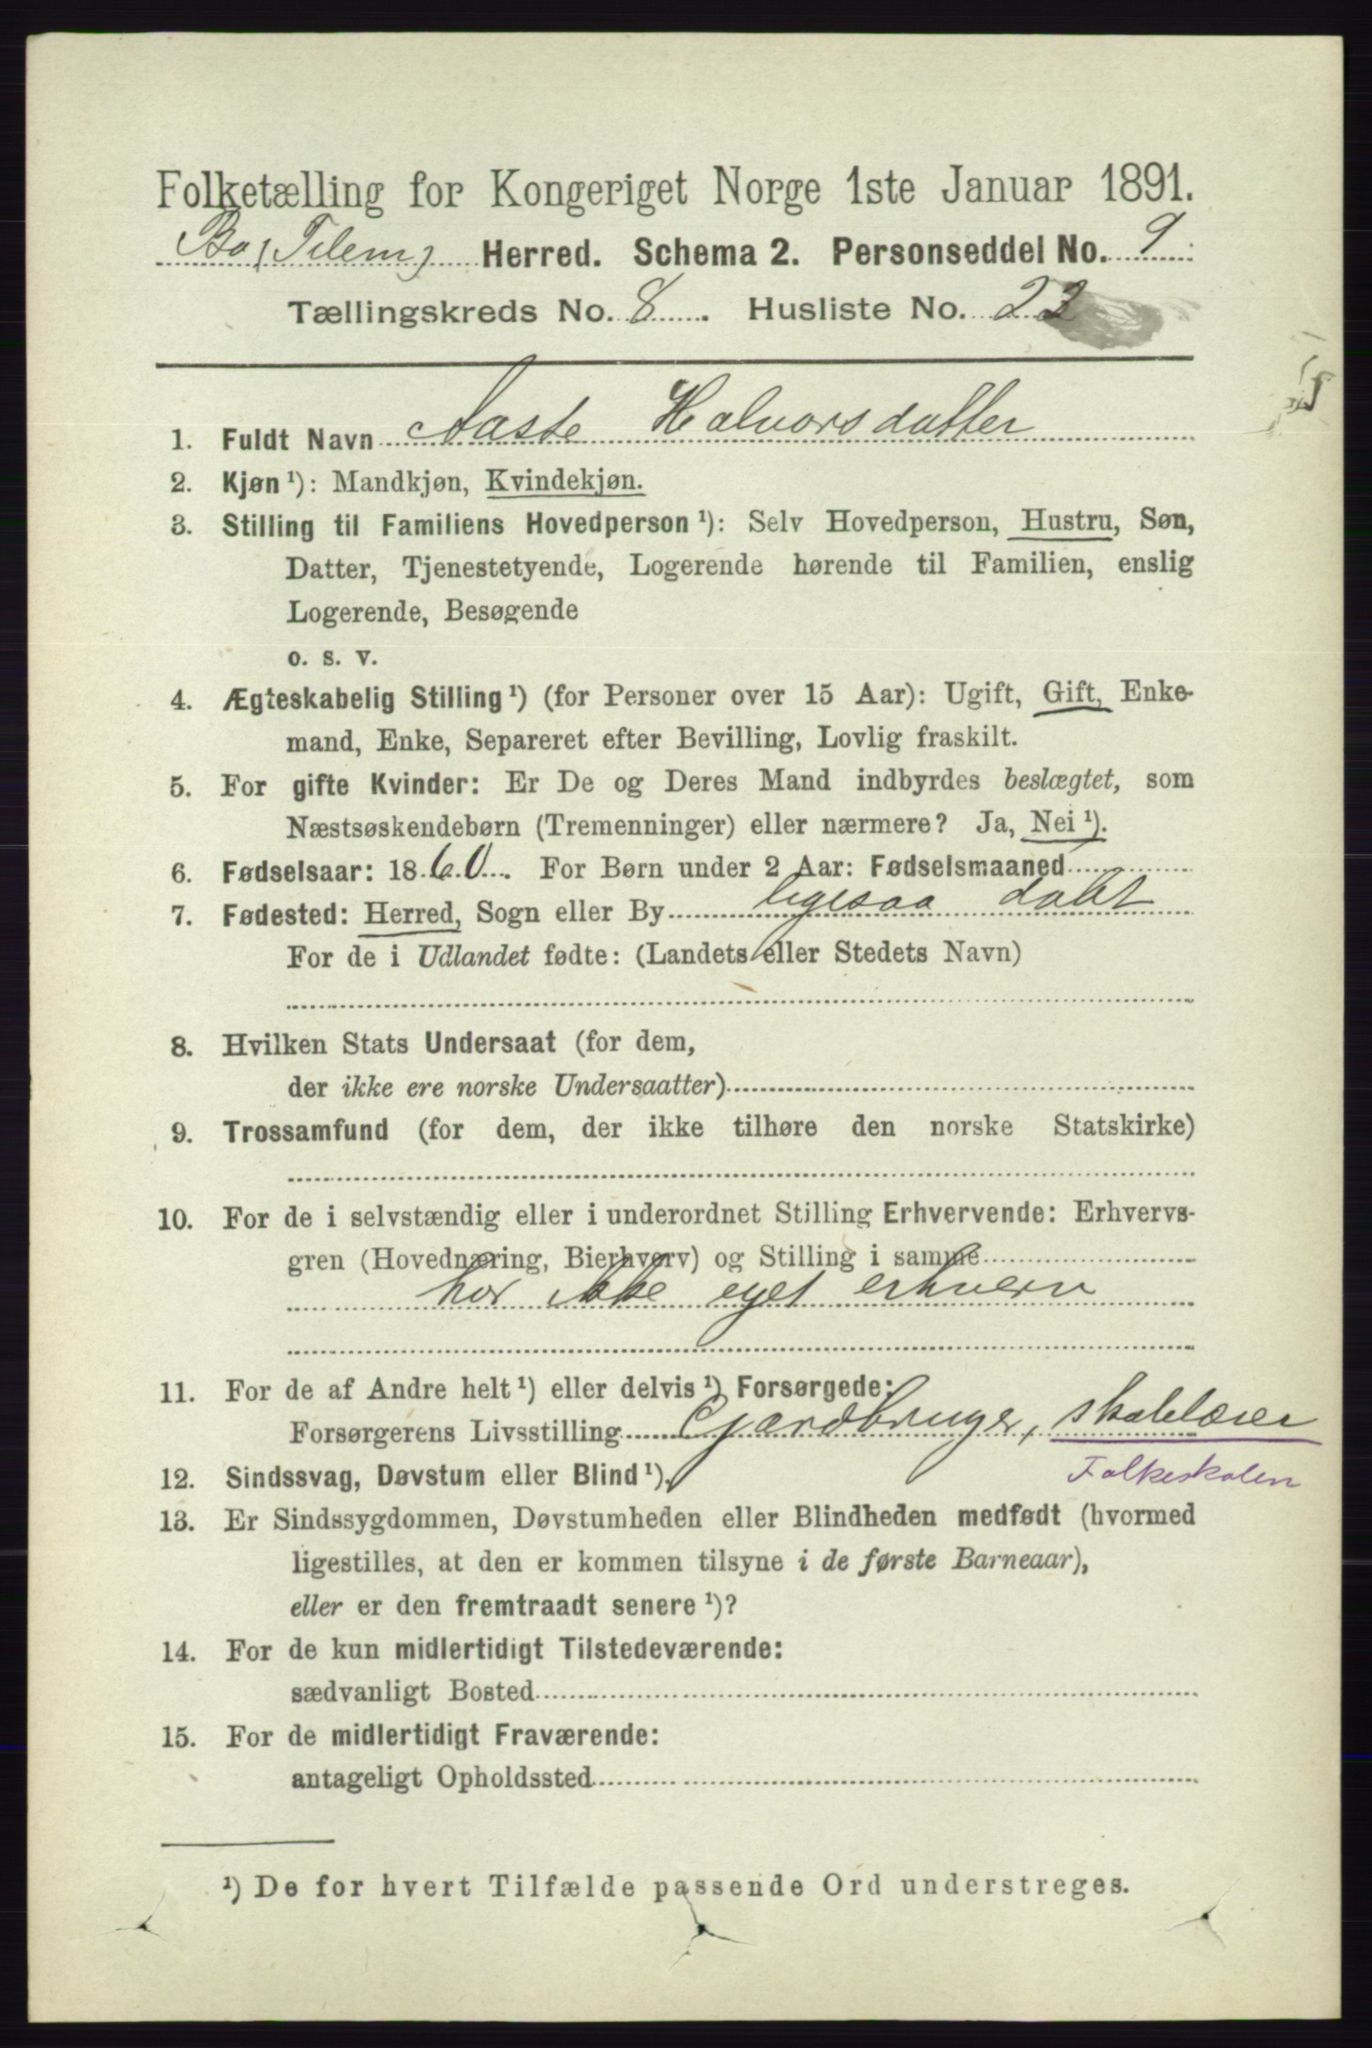 Folketælling for Kongeriget Norge 1ste Januar 1891.
Bø (Telem) Herred. Schema 2. Personseddel No. 9
Tællingskreds No. 8. Husliste No. 22
1. Fuldt Navn Aaste Halvorsdatter
2. Kjøn ¹): Mandkjøn, Kvindekjøn.
3. Stilling til Familiens Hovedperson ¹): Selv Hovedperson, Hustru, Søn,
Datter, Tjenestetyende, Logerende hørende til Familien, enslig
Logerende, Besøgende
o. s. v.
4. Ægteskabelig Stilling ¹) (for Personer over 15 Aar): Ugift, Gift, Enke-
mand, Enke, Separeret efter Bevilling, Lovlig fraskilt.
5. For gifte Kvinder: Er De og Deres Mand indbyrdes beslægtet, som
Næstsøskendebørn (Tremenninger) eller nærmere? Ja, Nei ¹).
6. Fødselsaar: 1860. For Børn under 2 Aar: Fødselsmaaned
7. Fødested: Herred, Sogn eller By ligesaa
For de i Udlandet fødte: (Landets eller Stedets Navn)
8. Hvilken Stats Undersaat (for dem,
der ikke ere norske Undersaatter)
9. Trossamfund (for dem, der ikke tilhøre den norske Statskirke)
10. For de i selvstændig eller i underordnet Stilling Erhvervende: Erhvervs-
gren (Hovednæring, Bierhverv) og Stilling i samme
har ikke eget erhverv
11. For de af Andre helt ¹) eller delvis ¹) Forsørgede:
Forsørgerens Livsstilling Gjardbruger, skolelærer
12. Sindssvag, Døvstum eller Blind ¹). Folkeskolen
13. Er Sindssygdommen, Døvstumheden eller Blindheden medfødt (hvormed
ligestilles, at den er kommen tilsyne i de første Barneaar),
eller er den fremtraadt senere ¹)?
14. For de kun midlertidigt Tilstedeværende:
sædvanligt Bosted
15. For de midlertidigt Fraværende:
antageligt Opholdssted
¹) De for hvert Tilfælde passende Ord understreges.